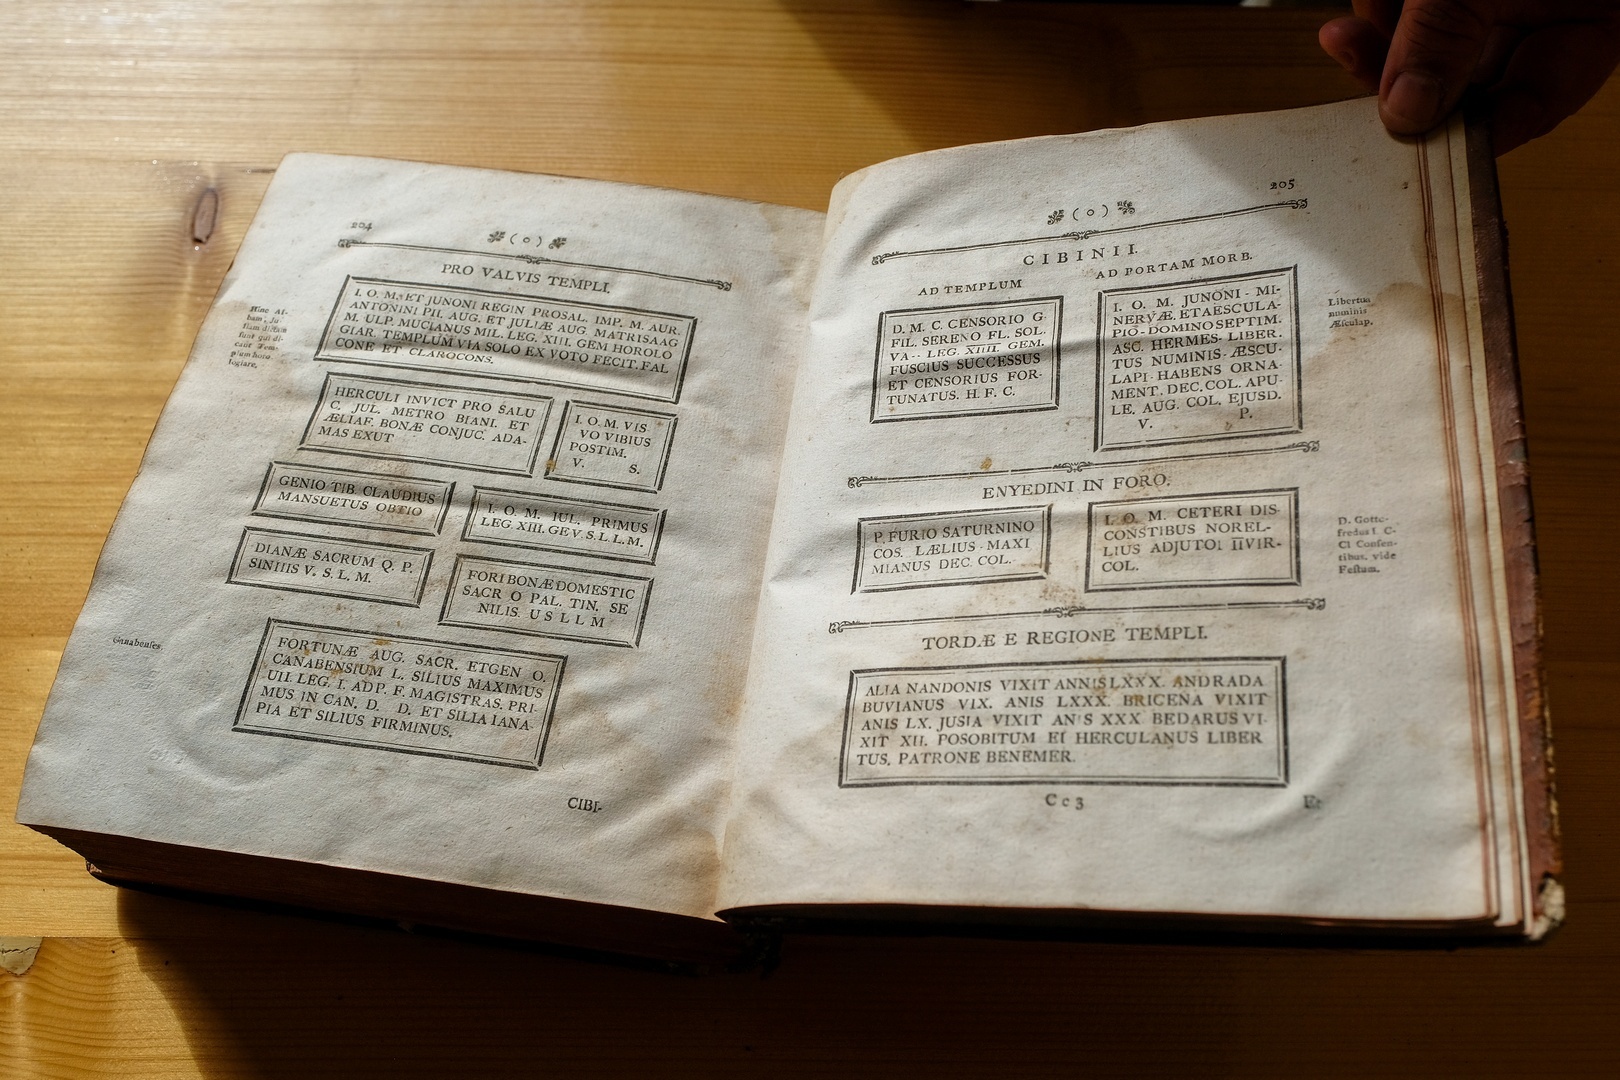 204
( o )
PRO VALVIS TEMPLI.
I. O. M. ET JUNONI REGIN PROSAL. IMP. M. AUR.
ANTONINI PII. AUG. ET JULIÆ AUG. MATRISAAG
M. ULP. MUCIANUS MIL. LEG. XIII. GEM HOROLO
GIAR. TEMPLUM VIA SOLO EX VOTO FECIT. FAL
CONE ET CLAROCONS.
HERCULI INVICT PRO SALU
C. JUL. METRO BIANI. ET
ÆLIAF. BONÆ CONJUC. ADA-
MAS EXUT
I. O. M. VIS
VO VIBIUS
POSTIM.
V. S.
GENIO TIB. CLAUDIUS
MANSUETUS OBTIO
I. O. M. IUL. PRIMUS
LEG. XIII. GE V. S. L. L. M.
DIANÆ SACRUM Q. P.
SINIIIS V. S. L. M.
FORI BONÆ DOMESTIC
SACR O PAL. TIN. SE
NILIS. U S L L M
Canabenses.
FORTUNÆ AUG. SACR. ETGEN O.
CANABENSIUM L. SILIUS MAXIMUS
UII. LEG. I. ADP. F. MAGISTRAS. PRI-
MUS IN CAN. D. D. ET SILIA IANA-
PIA ET SILIUS FIRMINUS.
CIBI-
205
( o )
CIBINII.
AD TEMPLUM
D. M. C. CENSORIO G
FIL. SERENO FL. SOL.
VA-- LEG. XIIII. GEM.
FUSCIUS SUCCESSUS
ET CENSORIUS FOR-
TUNATUS. H. F. C.
AD PORTAM MORB.
I. O. M. JUNONI - MI-
NERVÆ. ETAESCULA-
PIO - DOMINO SEPTIM.
ASC. HERMES - LIBER.
TUS NUMINIS - ÆSCU-
LAPI - HABENS ORNA-
MENT. DEC. COL. APU-
LE. AUG. COL. EJUSD.
V. P.
Libertus
numinis
Æsculap.
ENYEDINI IN FORO.
P. FURIO SATURNINO
COS. LÆLIUS - MAXI
MIANUS DEC. COL.
I. O. M. CETERI DIS-
CONSTIBUS NOREL-
LIUS ADJUTOI IIVIR-
COL.
D. Gotte-
fredus i. C-
Ci Consen-
tibus. vide
Festum.
TORDÆ E REGIONE TEMPLI.
ALIA NANDONIS VIXIT ANNIS LXXX. ANDRADA
BUVIANUS VIX. ANIS LXXX. BRICENA VIXIT
ANIS LX. JUSIA VIXIT ANIS XXX BEDARUS VI-
XIT XII. POSOBITUM EI HERCULANUS LIBER
TUS. PATRONE BENEMER.
Cc3
Et